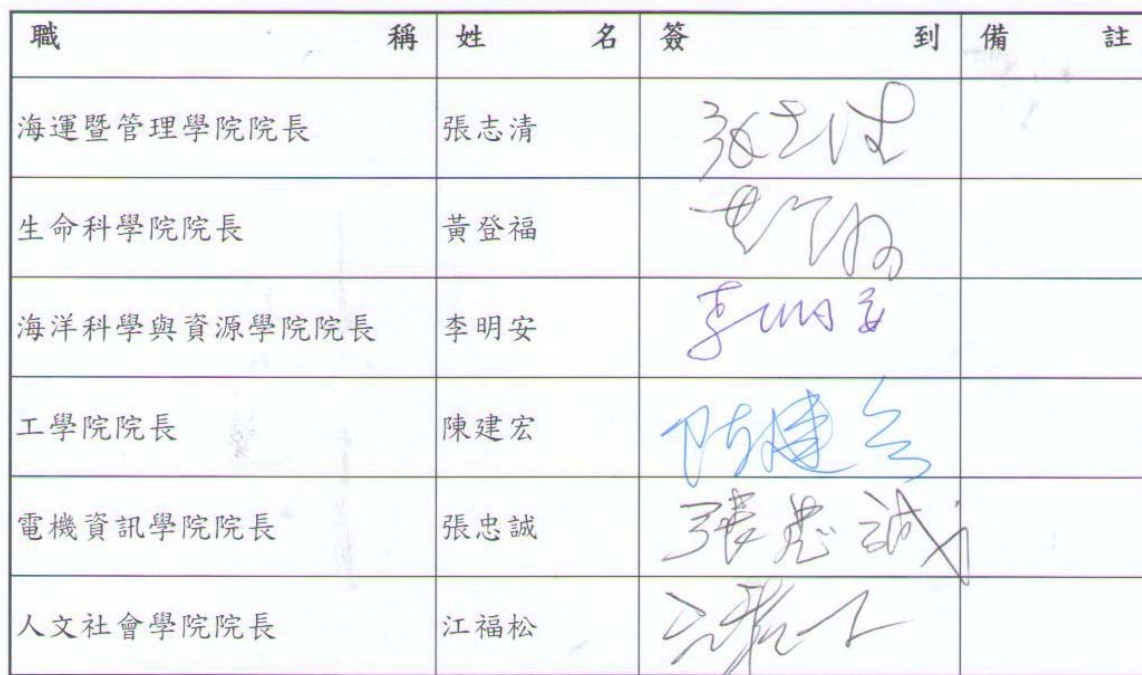 職稱 姓名 簽到 備註
海運暨管理學院院長 張志清 張志清
生命科學院院長 黃登福
海洋科學與資源學院院長 李明安 李明安
工學院院長 陳建宏 陳建宏
電機資訊學院院長 張忠誠 張忠誠
人文社會學院院長 江福松